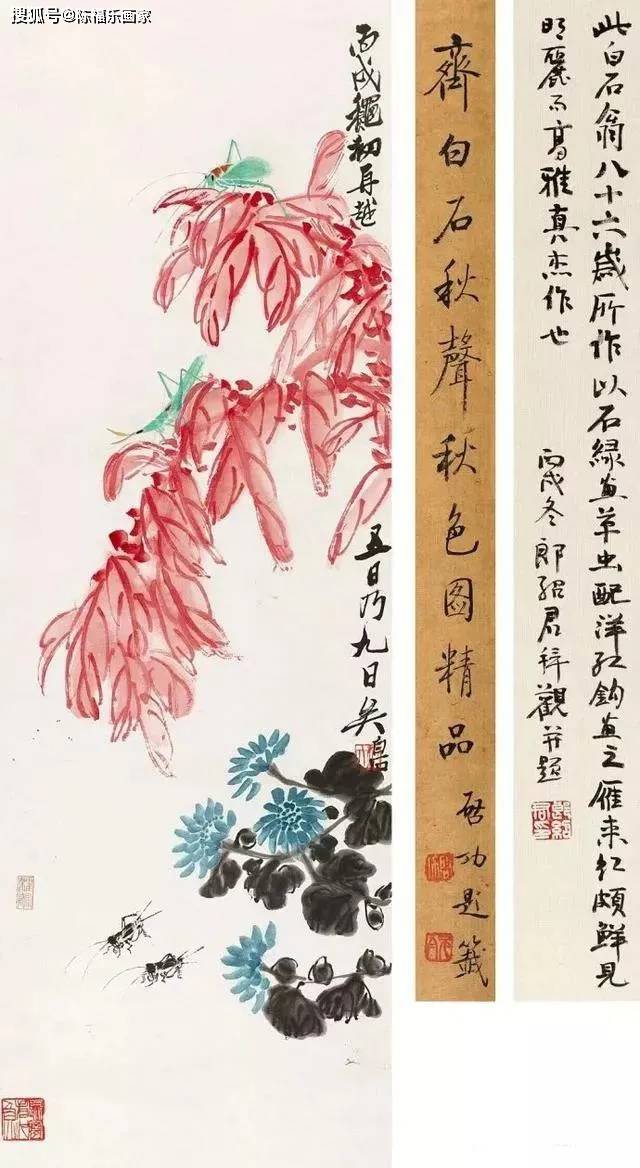 搜狐号@陈福乐画家
丙戌穐初再越
五日乃九日矣
齊白石秋聲秋色图精品
啓功题籤
此白石翁八十六歲所作以石緑画草虫配洋红鈎画之雁来红頗鮮見
明麗而高雅真杰作也
丙戌冬郎紹君拜觀并題